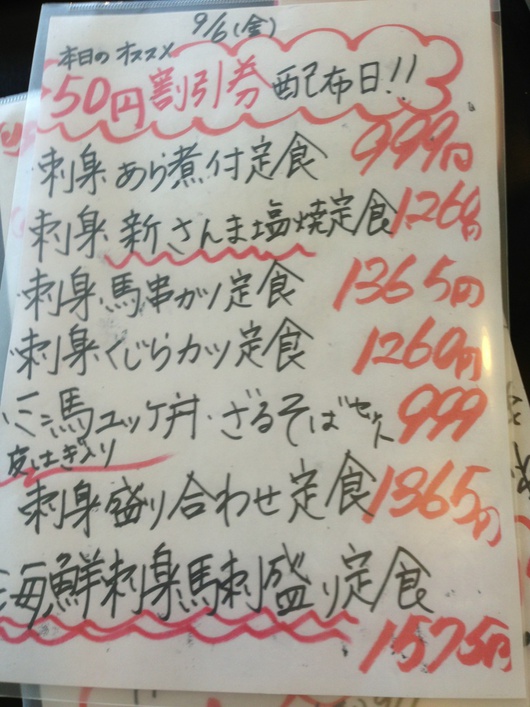 9/6(金)
本日のオススメ
50円割引券 配布日!!
刺身 あら煮付定食 999円
刺身 新さんま塩焼定食 1,260円
刺身 馬串カツ定食 1365円
刺身 くじらカツ定食 1260円
ミニ馬ユッケ丼・ざるそばセット 999
皮はぎ入り
刺身盛り合わせ定食 1365円
海鮮刺身馬刺盛り定食
1575円